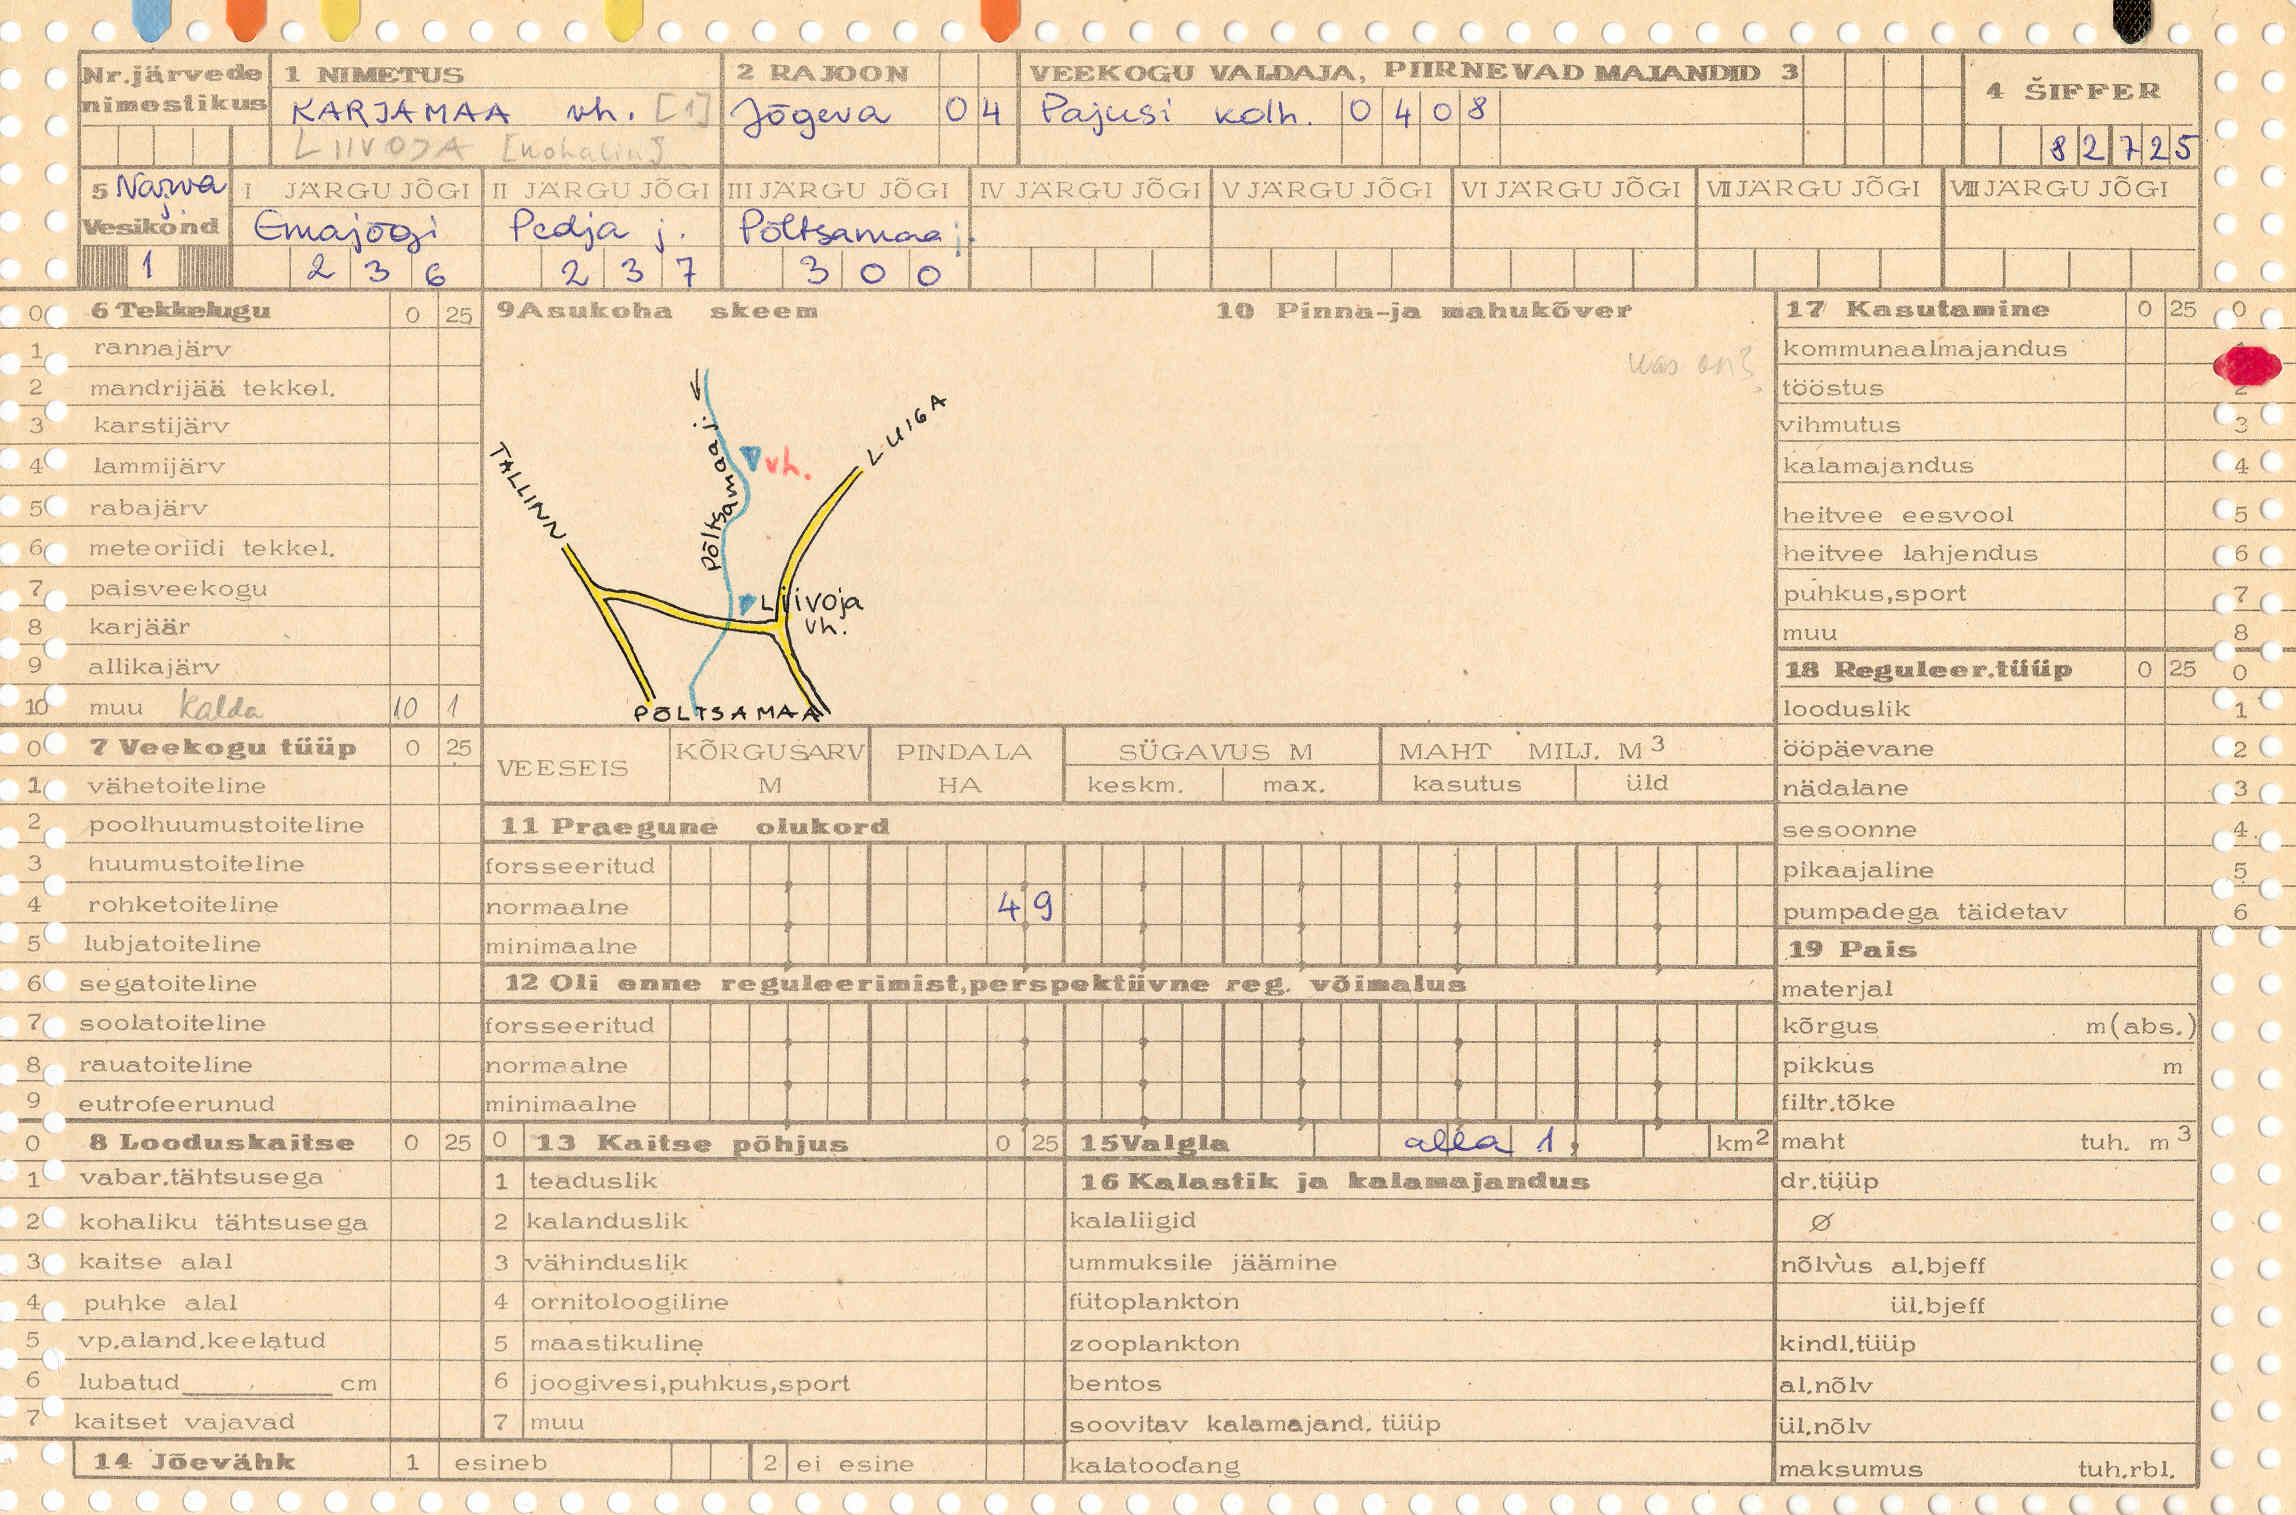 Nr.järvede nimestikus
1 NIMETUS
KARJAMAA vh. [1]
LIIVOJA [kohalik]
2 RAJOON
Jõgeva 04
VEEKOGU VALDAJA, PIIRNEVAD MAJANDID 3
Pajusi kolh. 0408
4 ŠIFFER
82725
5 Narva j.
Vesikond
1
I JÄRGU JÕGI
Emajõgi
236
II JÄRGU JÕGI
Pedja j.
237
III JÄRGU JÕGI
Põltsamaa j.
300
IV JÄRGU JÕGI
V JÄRGU JÕGI
VI JÄRGU JÕGI
VII JÄRGU JÕGI
VIII JÄRGU JÕGI
0 6 Tekkelugu 0 25
1 rannajärv
2 mandrijää tekkel.
3 karstijärv
4 lammijärv
5 rabajärv
6 meteoriidi tekkel.
7 paisveekogu
8 karjäär
9 allikajärv
10 muu Kalda 10 1
0 7 Veekogu tüüp 0 25
1 vähetoiteline
2 poolhuumustoiteline
3 huumustoiteline
4 rohketoiteline
5 lubjatoiteline
6 segatoiteline
7 soolatoiteline
8 rauatoiteline
9 eutrofeerunud
0 8 Looduskaitse 0 25
1 vabar.tähtsusega
2 kohaliku tähtsusega
3 kaitse alal
4 puhke alal
5 vp.aland.keelatud
6 lubatud cm
7 kaitset vajavad
14 Jõevähk 1 esineb 2 ei esine
9 Asukoha skeem
TALLINN
Põltsamaa j.
vh.
LUIGA
Liivoja
vh.
PÕLTSAMAA
10 Pinna-ja mahukõver
kas on?
VEESEIS
KÕRGUSARV M
PINDALA HA
SÜGAVUS M
keskm. max.
MAHT MILJ. M3
kasutus üld
11 Praegune olukord
forsseeritud
normaalne 49
minimaalne
12 Oli enne reguleerimist,perspektiivne reg. võimalus
forsseeritud
normaalne
minimaalne
0 13 Kaitse põhjus 0 25
1 teaduslik
2 kalanduslik
3 vähinduslik
4 ornitoloogiline
5 maastikuline
6 joogivesi,puhkus,sport
7 muu
15 Valgla alla 1, km2
16 Kalastik ja kalamajandus
kalaliigid
ummuksile jäämine
fütoplankton
zooplankton
bentos
soovitav kalamajand. tüüp
kalatoodang
17 Kasutamine 0 25 0
kommunaalmajandus
tööstus 2
vihmutus 3
kalamajandus 4
heitvee eesvool 5
heitvee lahjendus 6
puhkus,sport 7
muu 8
18 Reguleer.tüüp 0 25 0
looduslik 1
ööpäevane 2
nädalane 3
sesoonne 4
pikaajaline 5
pumpadega täidetav 6
19 Pais
materjal
kõrgus m(abs.)
pikkus m
filtr.tõke
maht tuh. m3
dr.tüüp
Ø
nõlvus al.bjeff
ül.bjeff
kindl.tüüp
al.nõlv
ül.nõlv
maksumus tuh.rbl.